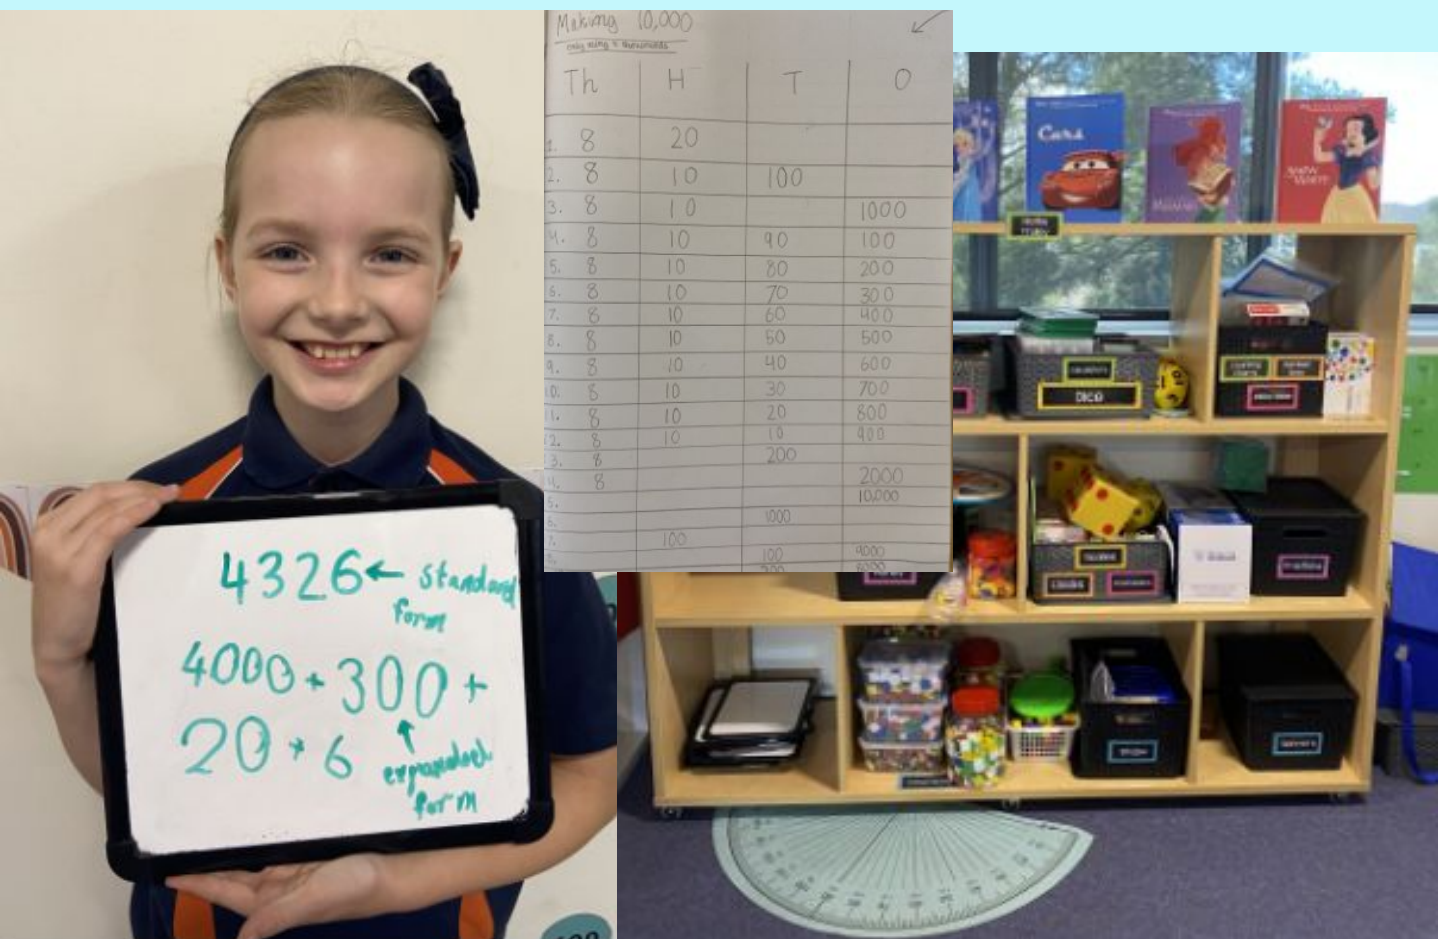 4326 ← standard
form
4000 + 300 +
20 + 6
↑
expanded
form
Making 10,000
Th H T O
1. 8 20
2. 8 10 100
3. 8 10 1000
4. 8 10 90 100
5. 8 10 80 200
6. 8 10 70 300
7. 8 10 60 400
8. 8 10 50 500
9. 8 10 40 600
10. 8 10 30 700
11. 8 10 20 800
12. 8 10 10 900
13. 8 200
14. 8 2000
10,000
1000
100
100 9000
200 8000
Cars
DICE